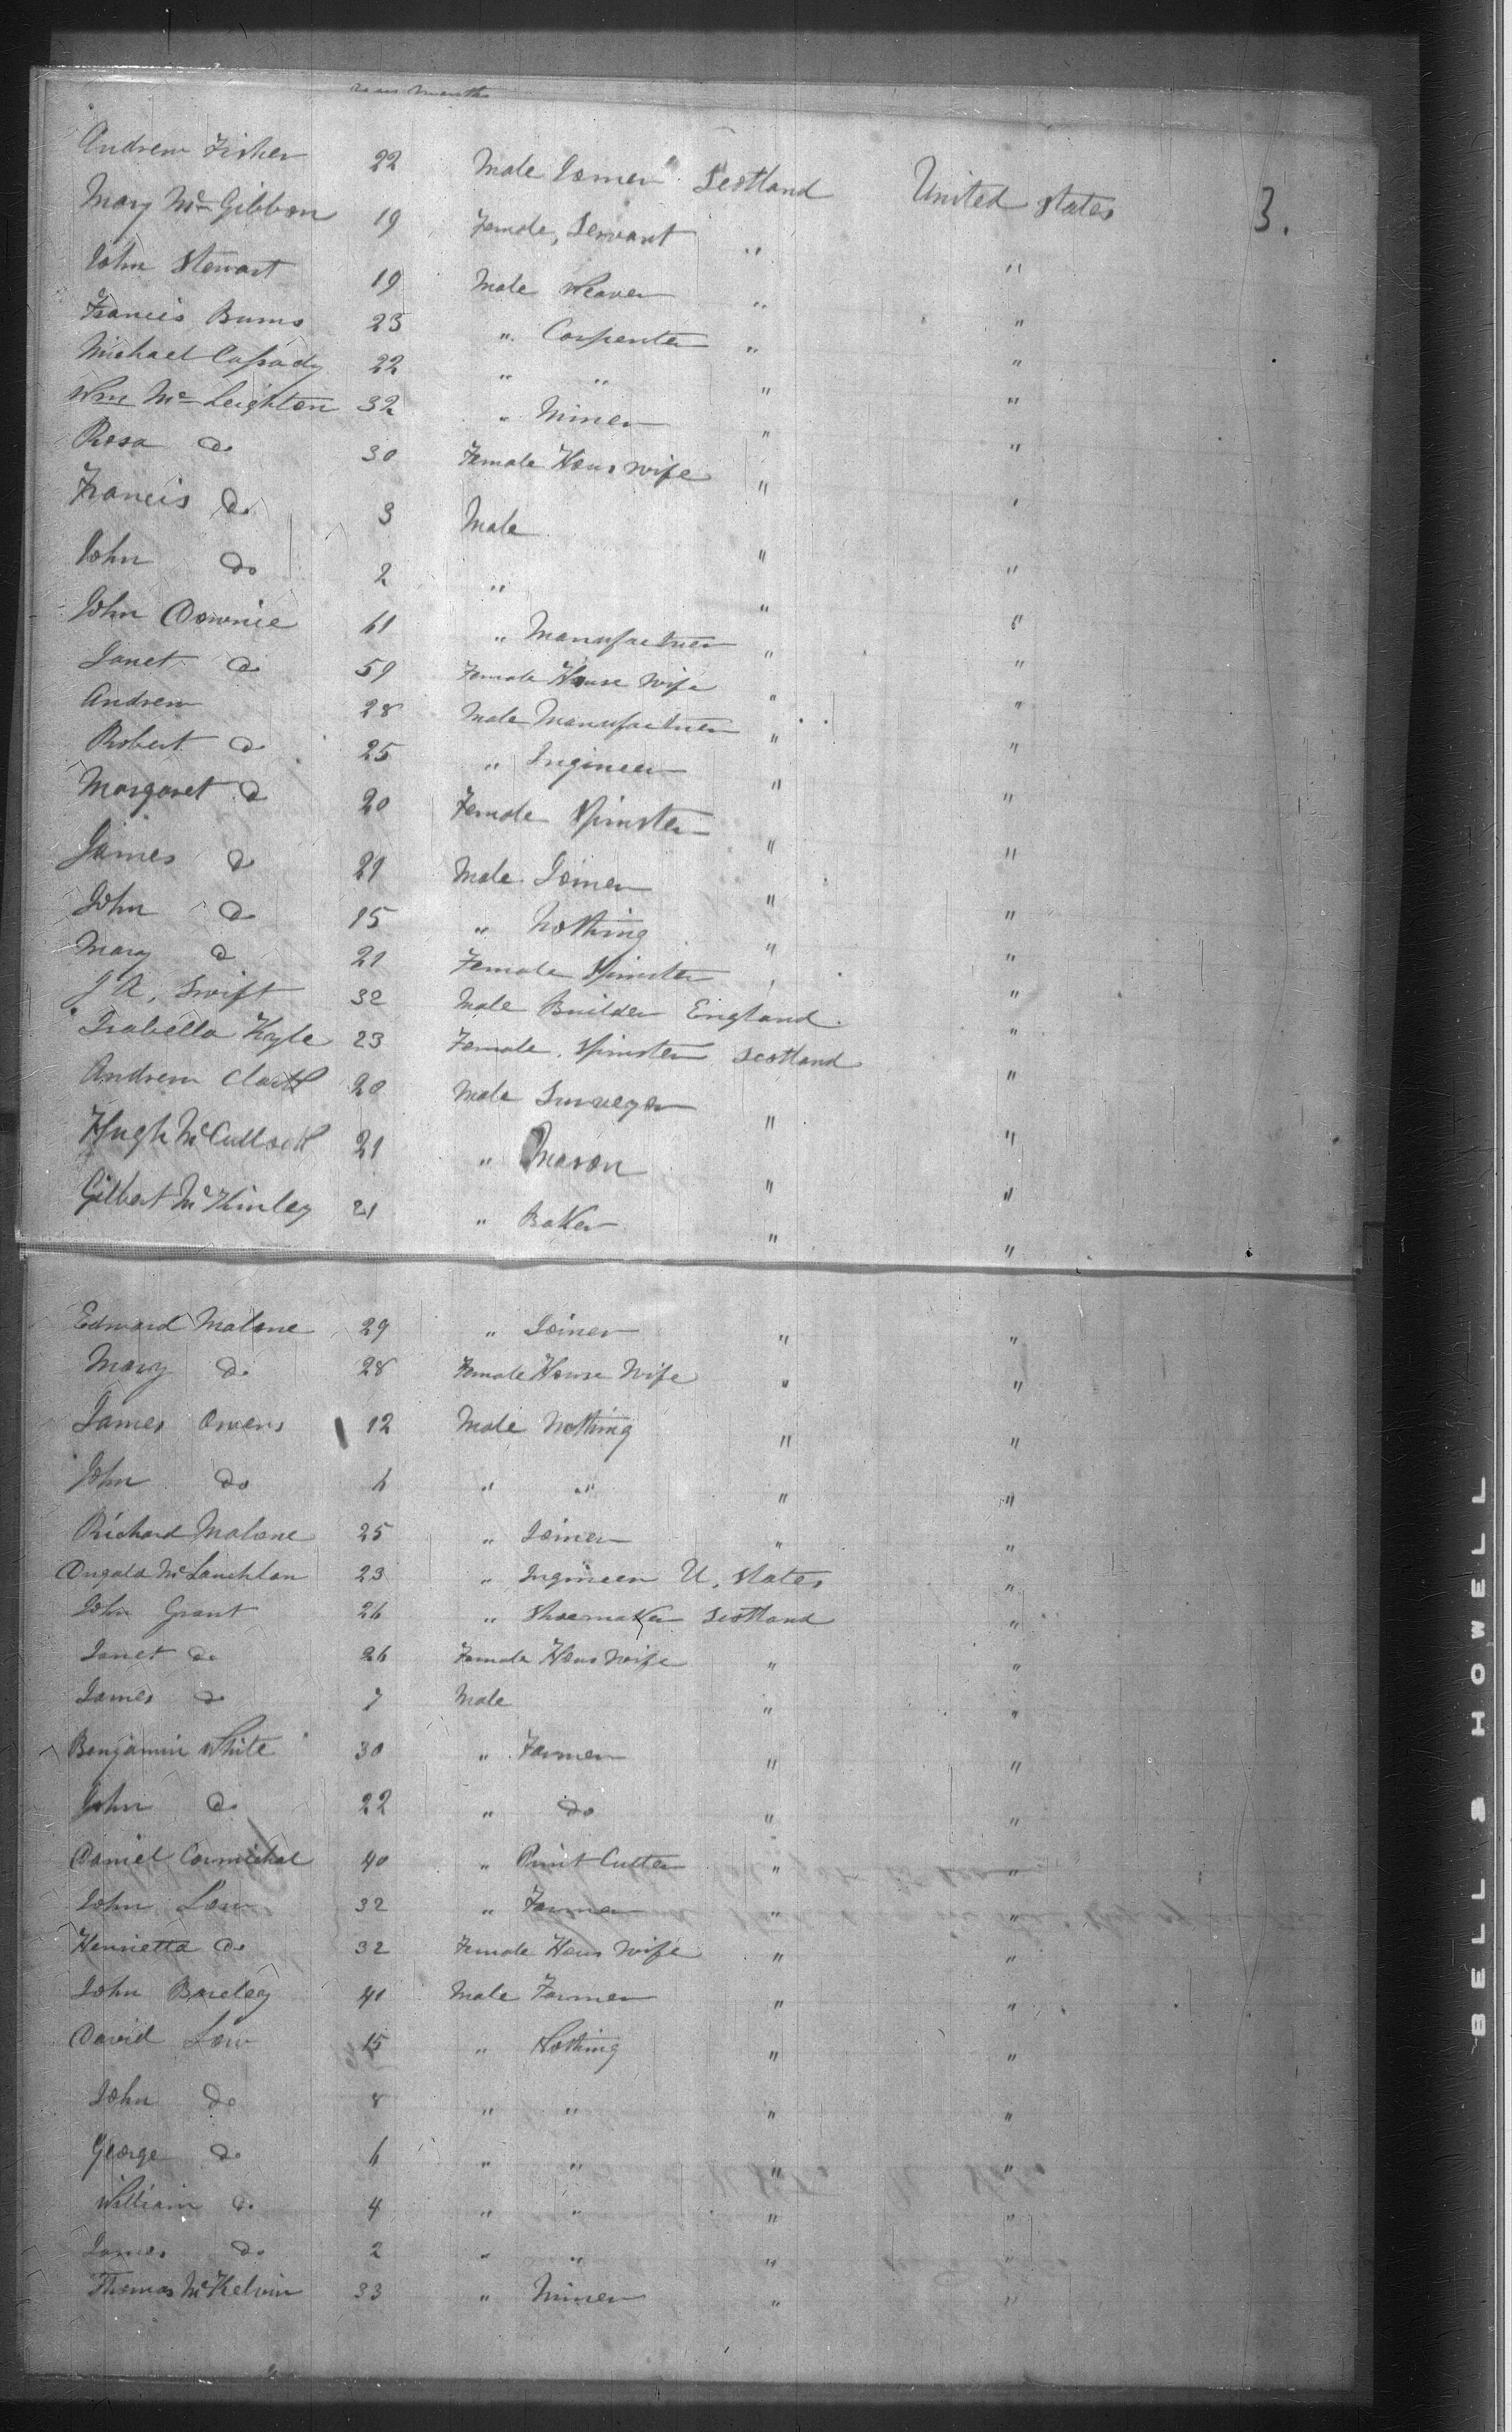 years months
Andrew Fisher 22 Male Joiner Scotland United States 3.
Mary McGibbon 19 Female, Servant " "
John Stewart 19 Male Weaver " "
Francis Burns 23 " Carpenter " "
Michael Cassady 22 " " " "
Wm McLeighton 32 " Miner " "
Rosa do 30 Female Hous wife " "
Francis do 3 Male " "
John do 2 " " "
John Downie 61 " Manufacturer " "
Janet do 59 Female House Wife " "
Andrew 28 Male Manufacturer " "
Robert do 25 " Ingineer " "
Margaret do 20 Female Spinster " "
James do 21 Male Joiner " "
John do 15 " Nothing " "
Mary do 21 Female Spinster " "
J A, Swift 32 Male Builder England "
Isabella Kyle 23 Female Spinster Scotland "
Andrew Clark 20 Male Surveyor " "
Hugh McCulloch 21 " Mason " "
Gilbert McKinley 21 " Baker " "
Edward Malone 29 " Joiner " "
Mary do 28 Female House Wife " "
James Owens 12 Male Nothing " "
John do 6 " " " "
Richard Malone 25 " Joiner " "
Dugald McLauchlan 23 " Ingineer U, States "
John Grant 26 " Shoemaker Scotland "
Janet do 26 Female Hous Wife " "
James do 7 Male " "
Benjamin White 30 " Farmer " "
John do 22 " do " "
Daniel Carmichal 40 " Print Cutter " "
John Low 32 " Farmer " "
Henrietta do 32 Female Hous Wife " "
John Barclay 41 Male Farmer " "
David Low 15 " Nothing " "
John do 8 " " " "
George do 6 " " " "
William do 4 " " " "
James do 2 " " " "
Thomas McKelvin 33 " Miner " "
BELL & HOWELL